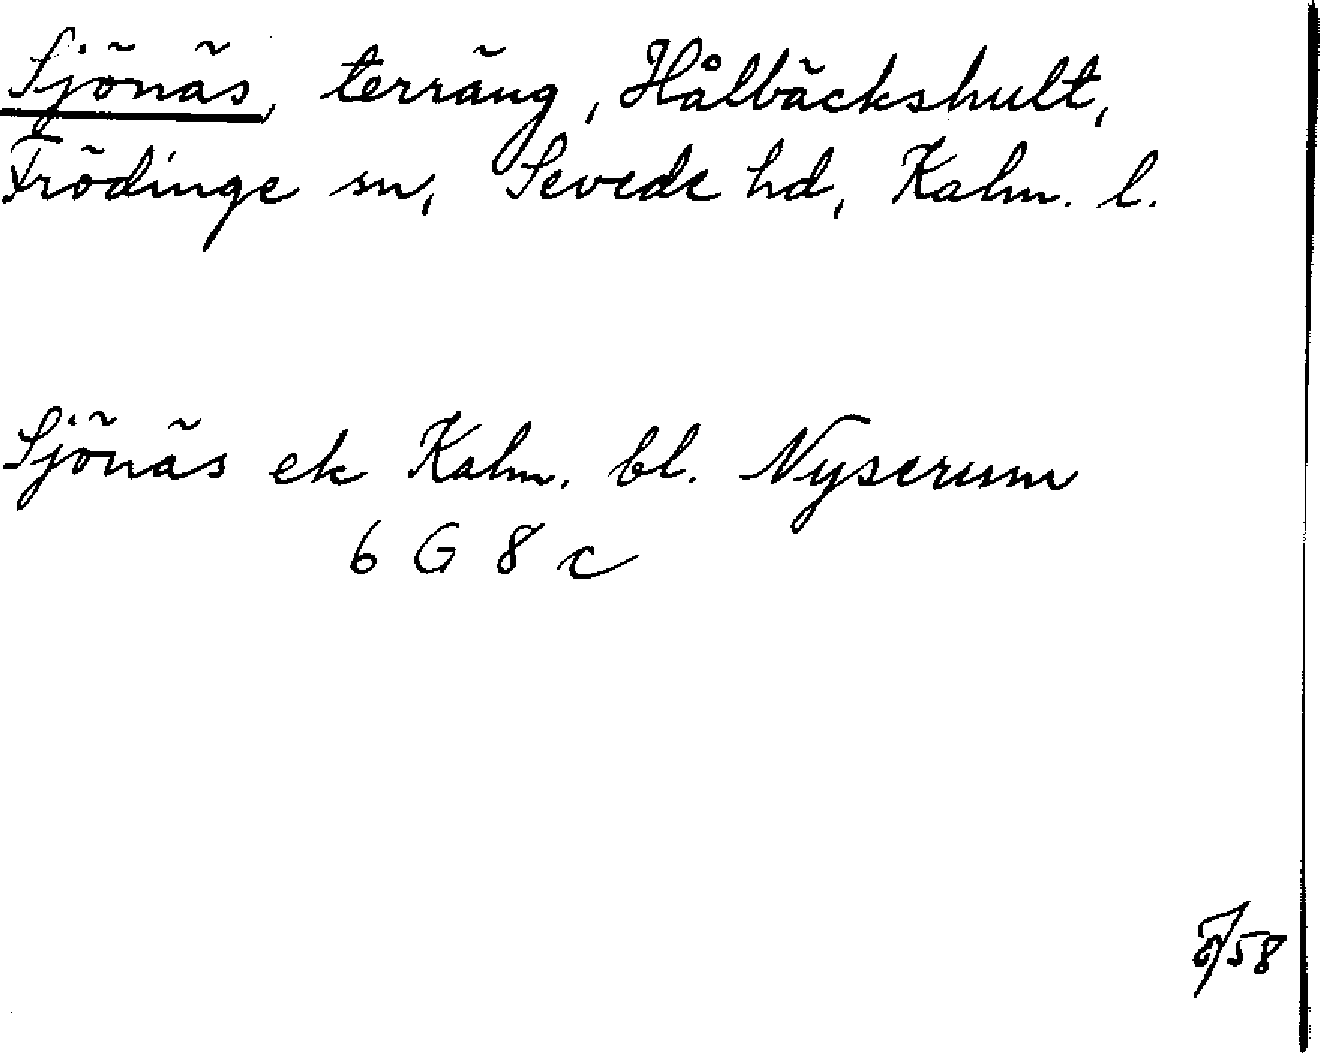 Sjönäs, terräng, Hålbäckshult,
Frödinge sn, Sevede hd, Kalm. l.
Sjönäs ek Kalm. bl. Nyserum
6 G 8 c